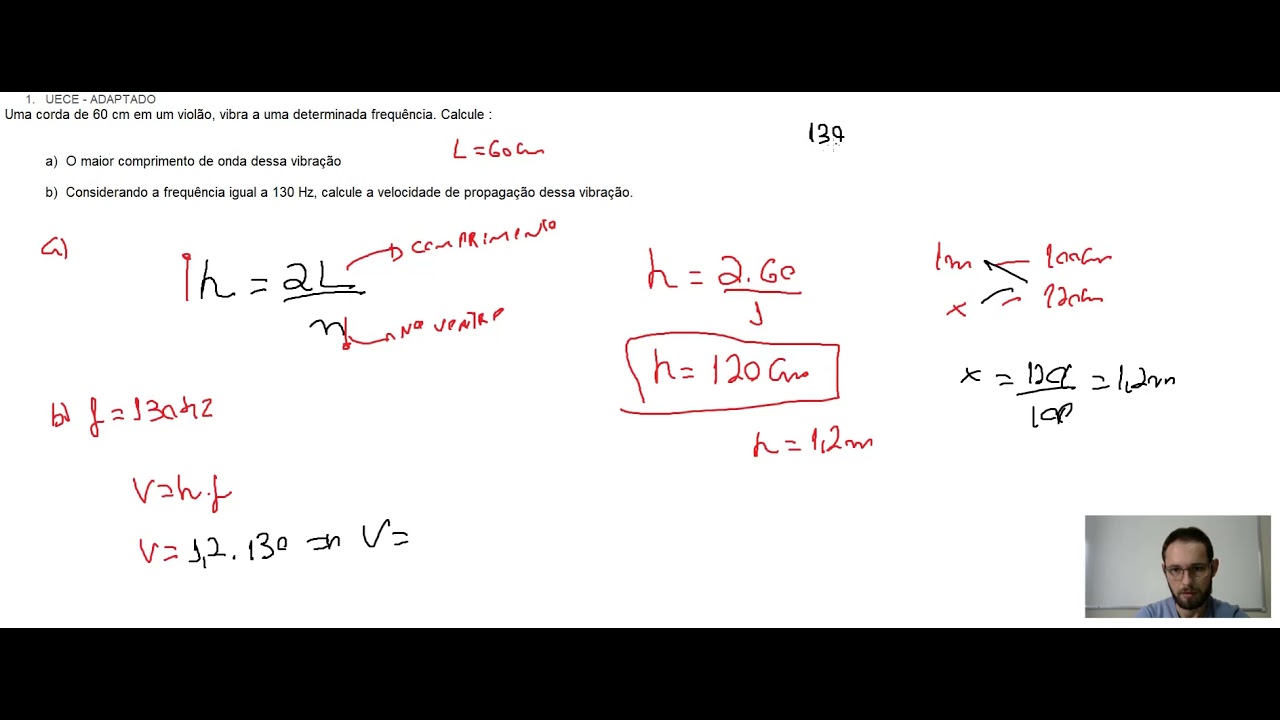 1. UECE - ADAPTADO
Uma corda de 60 cm em um violão, vibra a uma determinada frequência. Calcule :
L = 60 cm
130
a) O maior comprimento de onda dessa vibração
b) Considerando a frequência igual a 130 Hz, calcule a velocidade de propagação dessa vibração.
a)
λ = 2L / n
COMPRIMENTO
Nº VENTRE
λ = 2.60 / 1
λ = 120 cm
λ = 1,2 m
1m 100cm
x 120cm
x = 120 / 100 = 1,2 m
b) f = 130 Hz
V = λ.f
V = 1,2 . 130 ⇒ V =